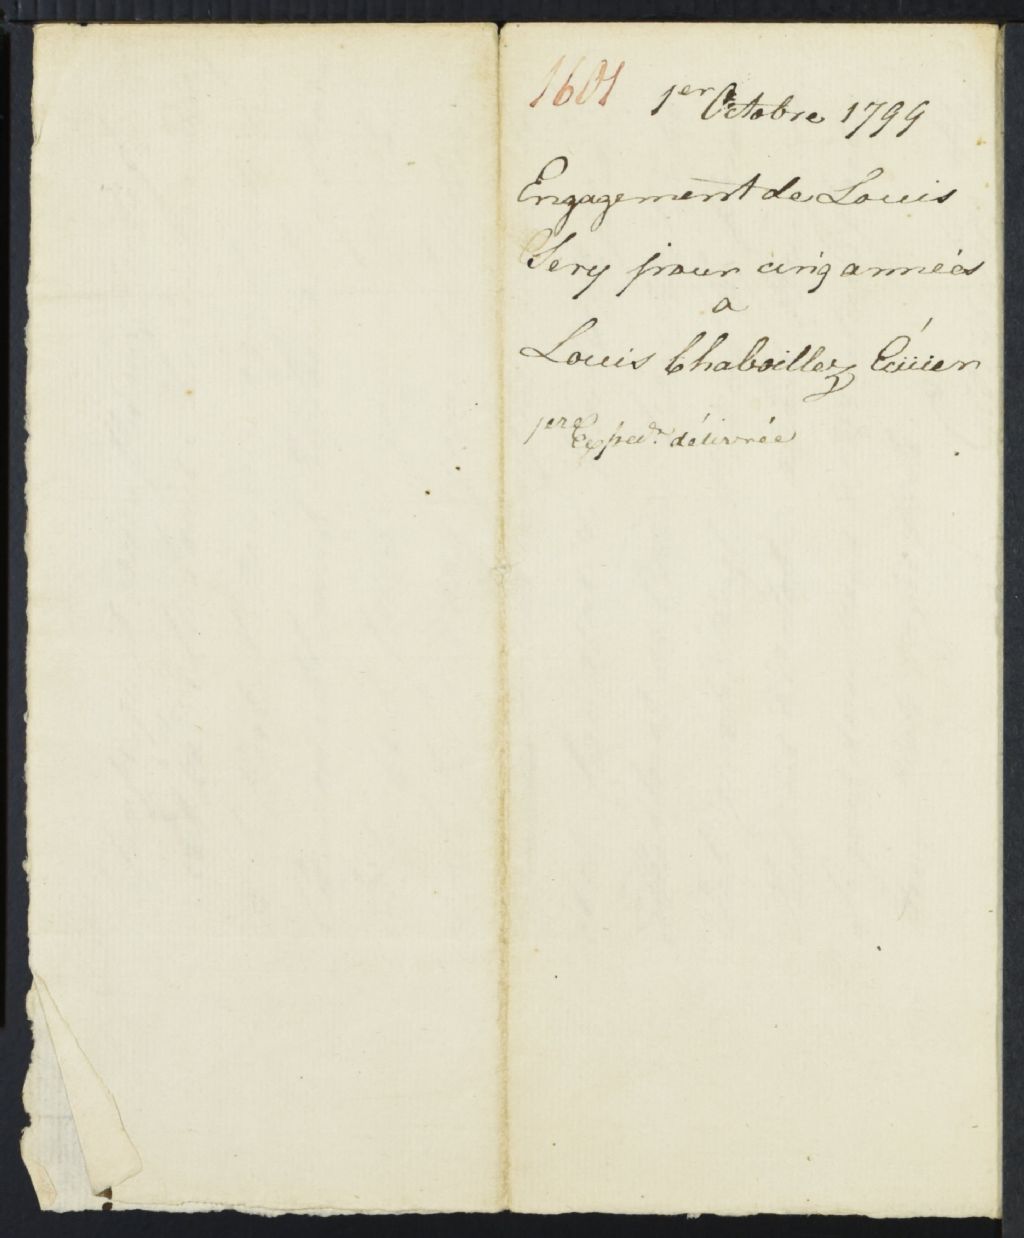 1601 1er Octobre 1799
Engagement de Louis
Sery pour cinq années
a
Louis Chaboillez Ecüier
1ere Expedn. délivrée